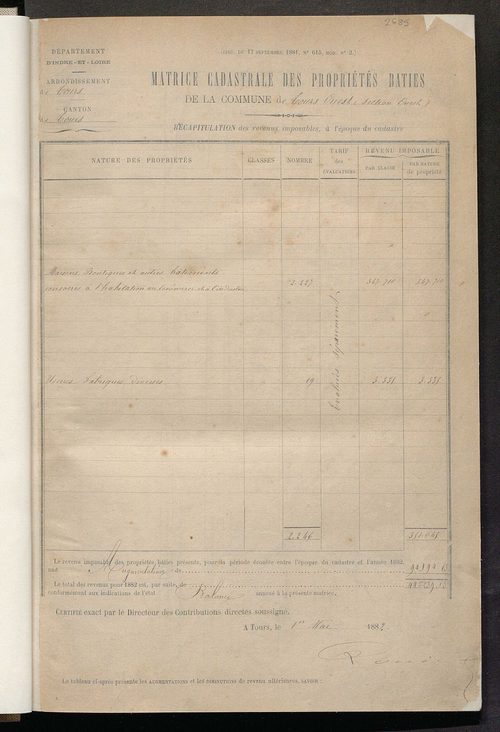 2685
DÉPARTEMENT
D'INDRE-ET-LOIRE
ARRONDISSEMENT
de Tours
CANTON
de Tours
(CIRC. DU 17 SEPTEMBRE 1881, N° 615, MOD. N° 2.)
MATRICE CADASTRALE DES PROPRIÉTÉS BATIES
DE LA COMMUNE de Tours Ouest (Section
RÉCAPITULATION des revenus imposables, à l'époque du cadastre
NATURE DES PROPRIÉTÉS
CLASSES
NOMBRE
TARIF
des
ÉVALUATIONS
REVENU IMPOSABLE
PAR CLASSE
PAR NATURE
de propriété
Maisons, Boutiques et autres bâtiments
consacrés à l'habitation au commerce et à l'industrie
2.227
347.710
347.710
Evalués séparément
Usines Fabriques diverses
19
3.331
3.331
2.246
Le revenu imposable des propriétés bâties présente, pour la période écoulée entre l'époque du cadastre et l'année 1882,
une Augmentation de
Le total des revenus pour 1882 est, par suite, de
conformément aux indications de l'état Balance annexé à la présente matrice.
CERTIFIÉ exact par le Directeur des Contributions directes soussigné.
A Tours, le 1er Mai 1882
Le tableau ci-après présente les AUGMENTATIONS et les DIMINUTIONS de revenu ultérieures. SAVOIR :